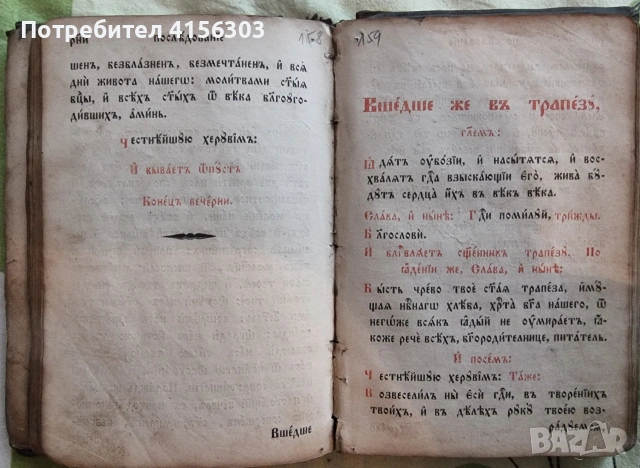 Потребител 4156303
рни послѣдованіе
158
159
шенъ, безблазненъ, безмечтаненъ, и҆ всѧ̀
дни̑ живота̀ нашегѡ: моли́твами ст҃ы́ѧ
бц҃ы, и҆ всѣ́хъ ст҃ы́хъ ѿ вѣ́ка бл҃гоуго-
ди́вшихъ, а҆ми́нь.
Честнѣ́йшую херуві́мъ:
И҆ быва́етъ ѿпу́стъ
Коне́цъ вече́рни.
Вше́дше
Вше́дше же въ трапе́зꙋ,
гл҃емъ:
Ꙗ҆дѧ́тъ ᲂу҆бо́зїи, и҆ насы́тѧтсѧ, и҆ вос-
хва́лѧтъ гдⷭ҇а взыска́ющїи є҆го̀, жива̀ бꙋ́-
дꙋтъ сердца̀ и҆́хъ въ вѣ́къ вѣ́ка.
Сла́ва, и҆ ны́нѣ: Гдⷭ҇и поми́лꙋй, три́жды.
Благословѝ.
И҆ блгⷭ҇влѧ́етъ сщ҃е́нникъ трапе́зꙋ. По
ꙗ҆де́нїи же, Сла́ва, и҆ ны́нѣ:
Бы́сть чре́во твоѐ ст҃а́ѧ трапе́за, и҆мꙋ́-
щаѧ нбⷭ҇наго хлѣ́ба, хрⷭ҇та̀ бг҃а на́шего, ѿ
негѡ́же всѧ́къ ꙗ҆ды́й не ᲂу҆мира́етъ, ꙗ҆́-
коже речѐ всѣ́хъ, бг҃ороди́тельнице, пита́тель.
И҆ посе́мъ:
Честнѣ́йшꙋю херꙋві́мъ: Та́же:
Возвесели́лъ ны̀ є҆сѝ гдⷭ҇и, въ творе́нїихъ
твои́хъ, и҆ въ дѣ́лѣхъ рꙋкꙋ̀ твоє́ю воз-
ра́дꙋемсѧ
BAZAR
bg